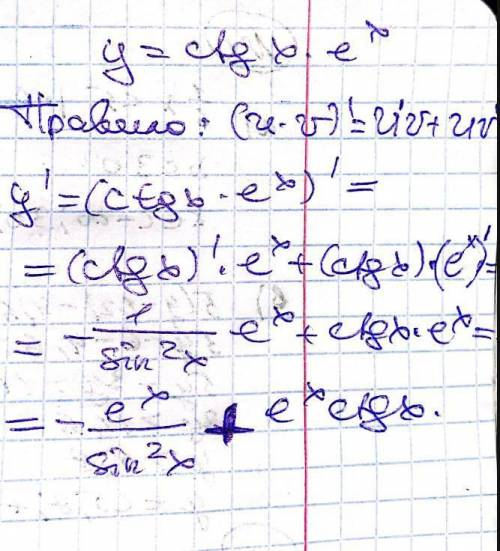 y = ctg x · e^x
Правило: (u·v)' = u'v + uv
y' = (ctg x · e^x)' =
= (ctg x)' · e^x + (ctg x) · (e^x)' =
= - 1/sin²x · e^x + ctg x · e^x =
= - e^x/sin²x + e^x ctg x.